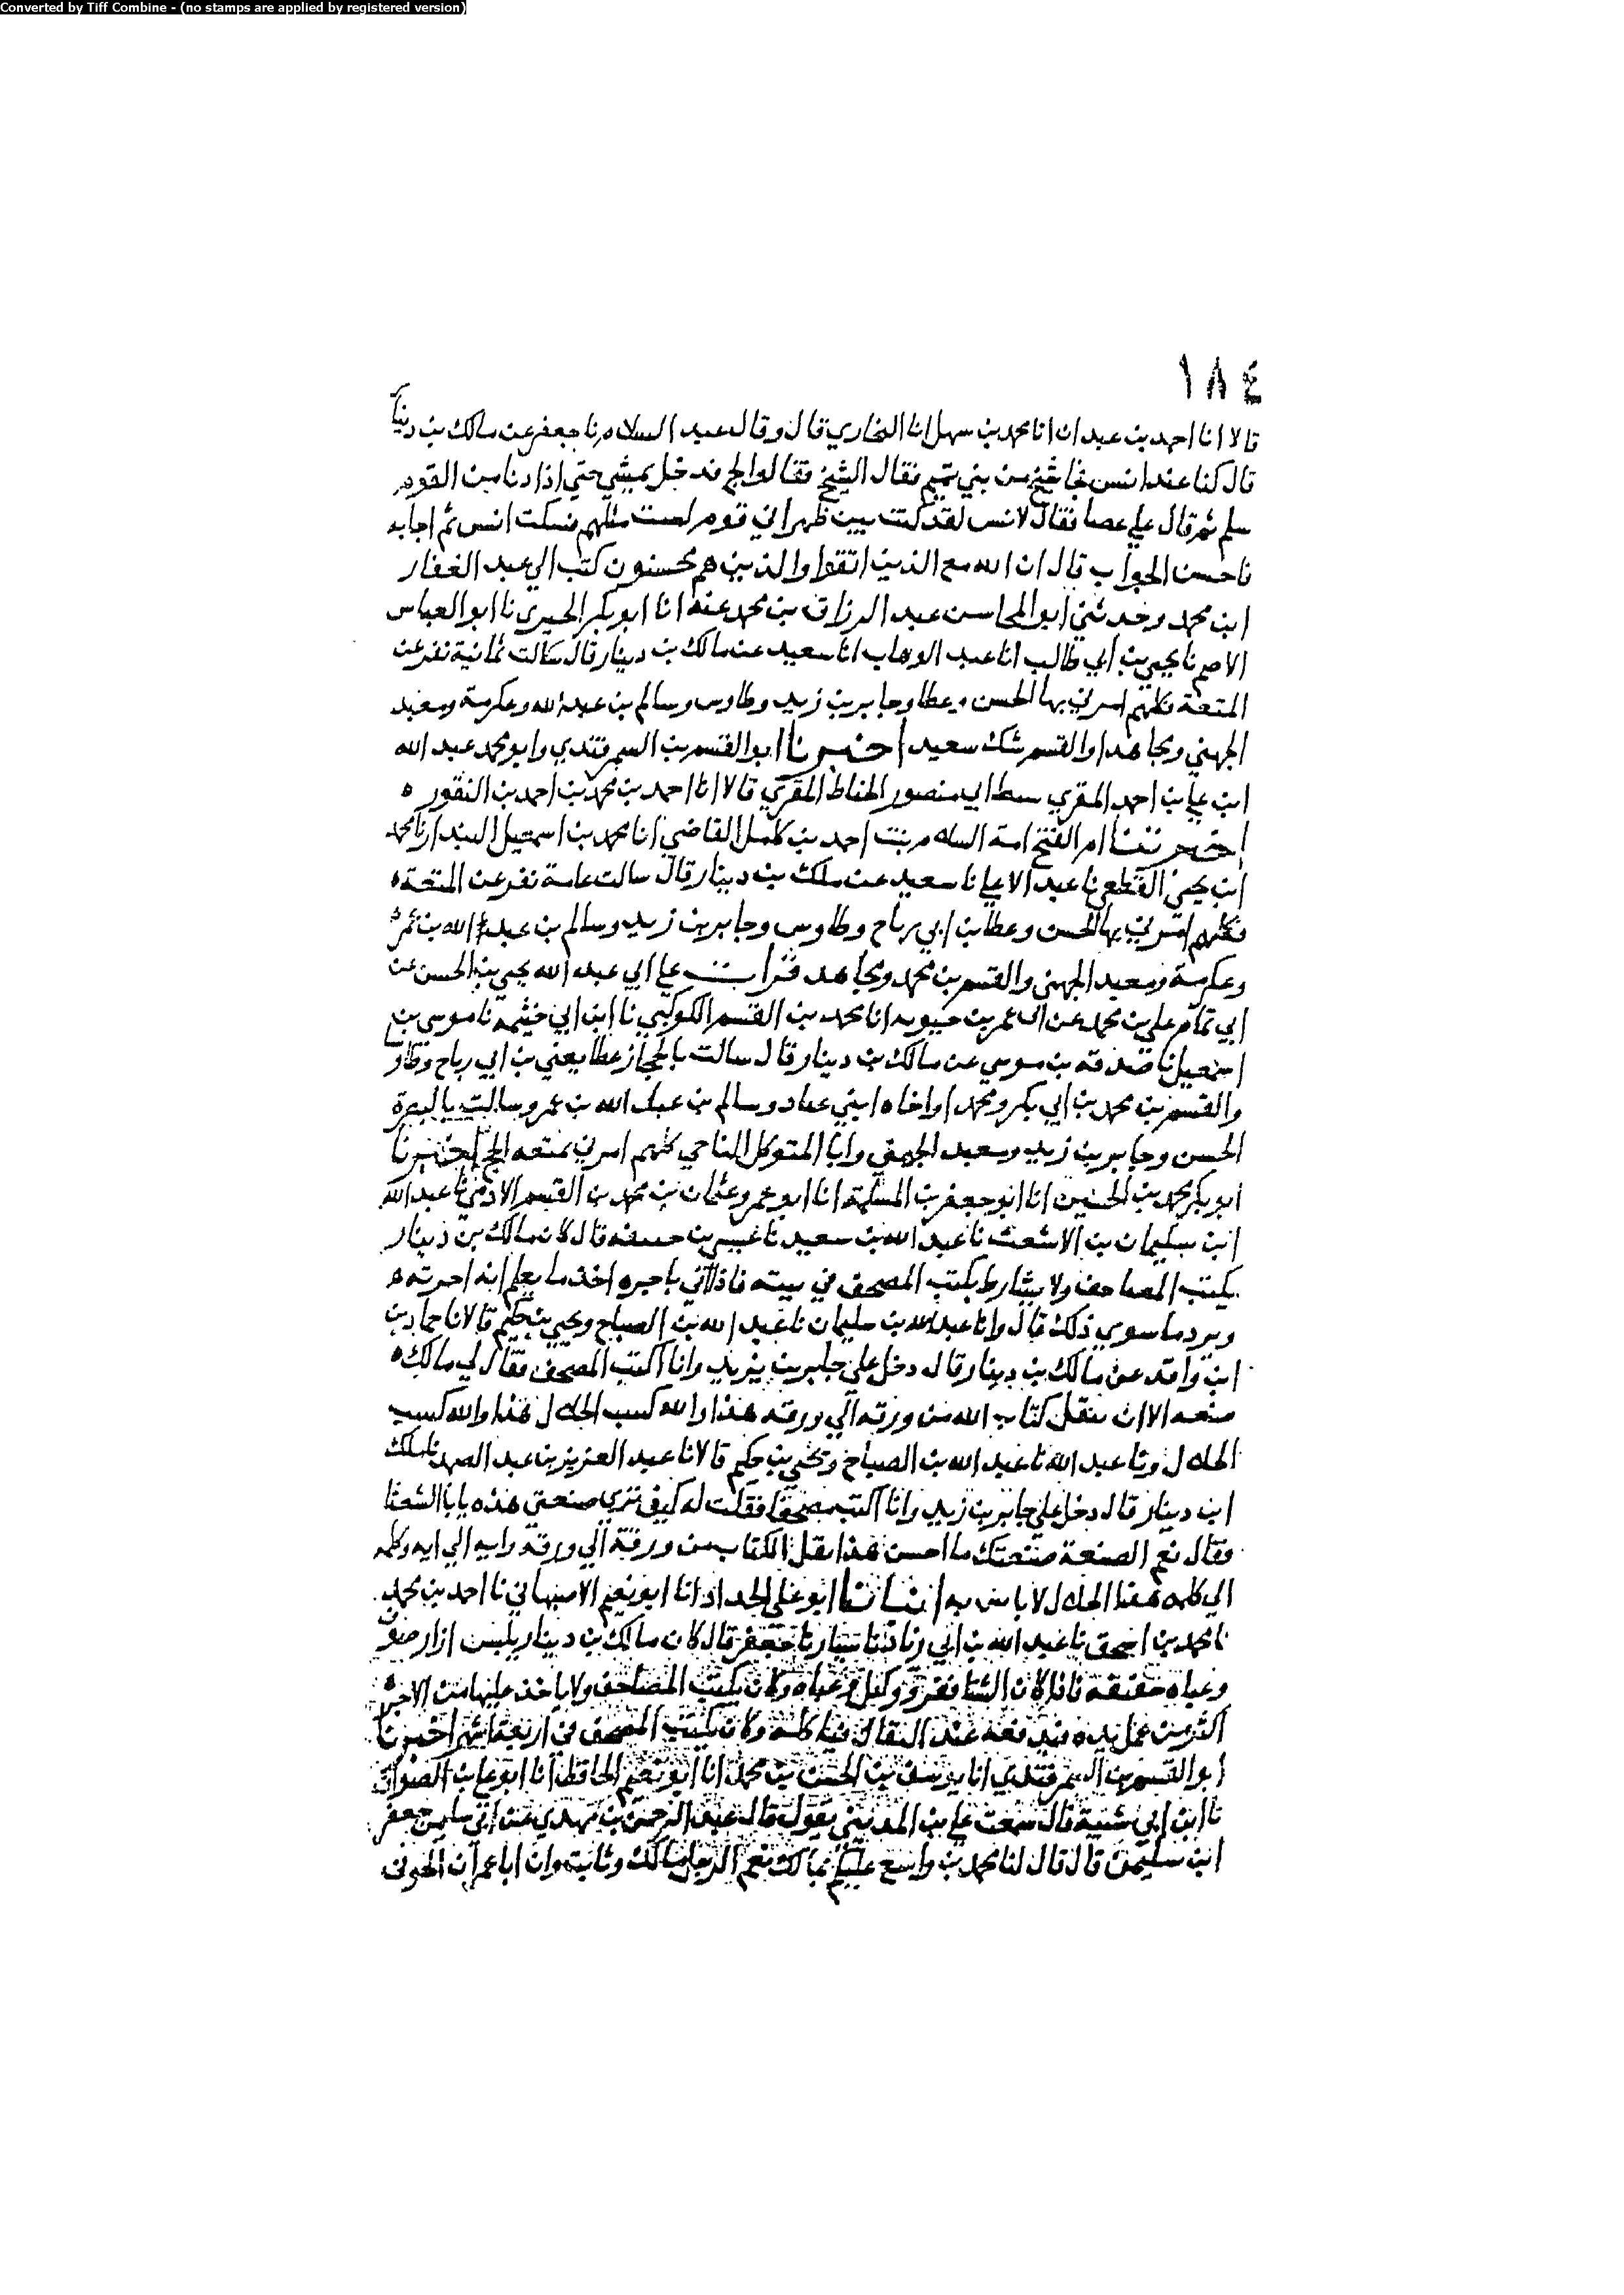 Converted by Tiff Combine - (no stamps are applied by registered version)
١٨٤
قالا انا احمد بن عبدان انا محمد بن سهل انا البخاري قال وقال عبد السلام نا جعفر عن مالك بن دينار
قال كنا عند انس فجا شيخ من بني تميم فقال الشيخ فقالوا فدخل يمشي حتي اذا دنا من القوم
سلم ثم قال علي عصا فقال لانس لقد كنت بين ظهراني قوم لست مثلهم فسكت انس ثم اجابه
فاحسن الجواب قال ان الله مع الذين اتقوا والذين هم محسنون كتب الي عبد الغفار
ابن محمد وحدثني ابو المحاسن عبد الرزاق بن محمد عنه انا ابو بكر الحيري نا ابو العباس
الاصم نا يحيي بن ابي طالب انا عبد الوهاب انا سعيد عن مالك بن دينار قال سالت ثمانية نفر عن
المتعة فكلهم امرني بها الحسن وعطا وجابر بن زيد وطاوس وسالم بن عبد الله وعكرمة ومعبد
الجهني ومجاهد او القسم شك سعيد اخبرنا ابو القسم بن السمرقندي وابو محمد عبد الله
ابن علي بن احمد المقري سبط ابي منصور الخياط المقري قالا انا احمد بن محمد بن احمد بن النقور ه
اخبرتنا ام الفتح امة السلام بنت احمد بن كامل القاضي انا محمد بن اسمعيل البندار نا محمد
ابن يحيي القطعي نا عبد الاعلي نا سعيد عن ملك بن دينار قال سالت عامة نفر عن المتعة ه
فكلهم امرني بها الحسن وعطا بن ابي رباح وطاوس وجابر بن زيد وسالم بن عبد الله بن عمر
وعكرمة ومعبد الجهني والقسم بن محمد ومجاهد قرات علي ابي عبد الله يحيي بن الحسن عن
ابي تمام علي بن محمد عن ابي عمر بن حيويه انا محمد بن القسم الكوكبي نا ابن ابي خيثمة نا موسي بن
اسمعيل نا صدقه بن موسي عن مالك بن دينار قال سالت بالحجاز عطا يعني بن ابي رباح وطاو
والقسم بن محمد بن ابي بكر ومحمدا واخاه ابني عباد وسالم بن عبد الله بن عمر وسالت بالبصرة
الحسن وجابر بن زيد ومعبد الجهني وابا المتوكل الناجي كلهم امرني بمتعه الحج اخبرنا
ابو بكر محمد بن الحسين انا ابو جعفر بن المسلمة انا ابو عمرو عثمان بن محمد بن القسم الادمي نا عبد الله
ابن سليمان بن الاشعث نا عبد الله بن سعيد نا بن قال كان مالك بن دينار
يكتب المصاحف ولا يشارط يكتب المصحف في بيته فاذا اتي باجره اخذ ما يعلم انه اجرته ه
ويرد ما سوي ذلك قال وانا عبد الله بن سليمان نا عبد الله بن الصباح ويحيي بن حكيم قالا نا حماد بن
ابن واقد عن مالك بن دينار قال دخل علي جابر بن يزيد وانا اكتب المصحف فقال لي مالك ه
صنعه الا ان تنقل كتاب الله من ورقه الي ورقه هذا والله كسب الحلال هذا والله كسب
الحلال ونا عبد الله نا عبد الله بن الصباح ويحيي بن حكيم قالا نا عبد العزيز بن عبد الصمد نا ملك
ابن دينار قال دخل علي جابر بن زيد وانا اكتب مصحفا فقلت له كيف تري صنعتي هذه يا با الشعثا
فقال نعم الصنعة صنعتك ما احسن هذا ينقل الكتاب من ورقة الي ورقه وايه الي ايه وكلمه
الي كلمه هذا الحلال لا باس به انبانا ابو علي الحداد انا ابو نعيم الاصبهاني نا احمد بن محمد
نا محمد بن اسحق نا عبد الله بن ابي زياد نا سيار نا جعفر قال كان مالك بن دينار يلبس ازار صوف
وعباه خفيفه فاذا كان الشتا ففرو وعباه وكان يكتب المصاحف ولا ياخذ عليها من الاجر
اكثر من عمل يده فيدفعه عند البقال فياكله وكان يكتب المصحف في اربعة اشهر اخبرنا
ابو القسم بن السمرقندي انا يوسف بن الحسن بن محمد انا ابو نعيم الحافظ انا ابو علي بن الصواف
نا ابن ابي شيبة قال سمعت علي بن المديني يقول قال عبد الرحمن بن مهدي عن ابي سليمن جعفر
ابن سليمن قال قال لنا محمد بن واسع عليكم بمالك نعم الرجل مالك وثابت وان ابا عمران الجوني